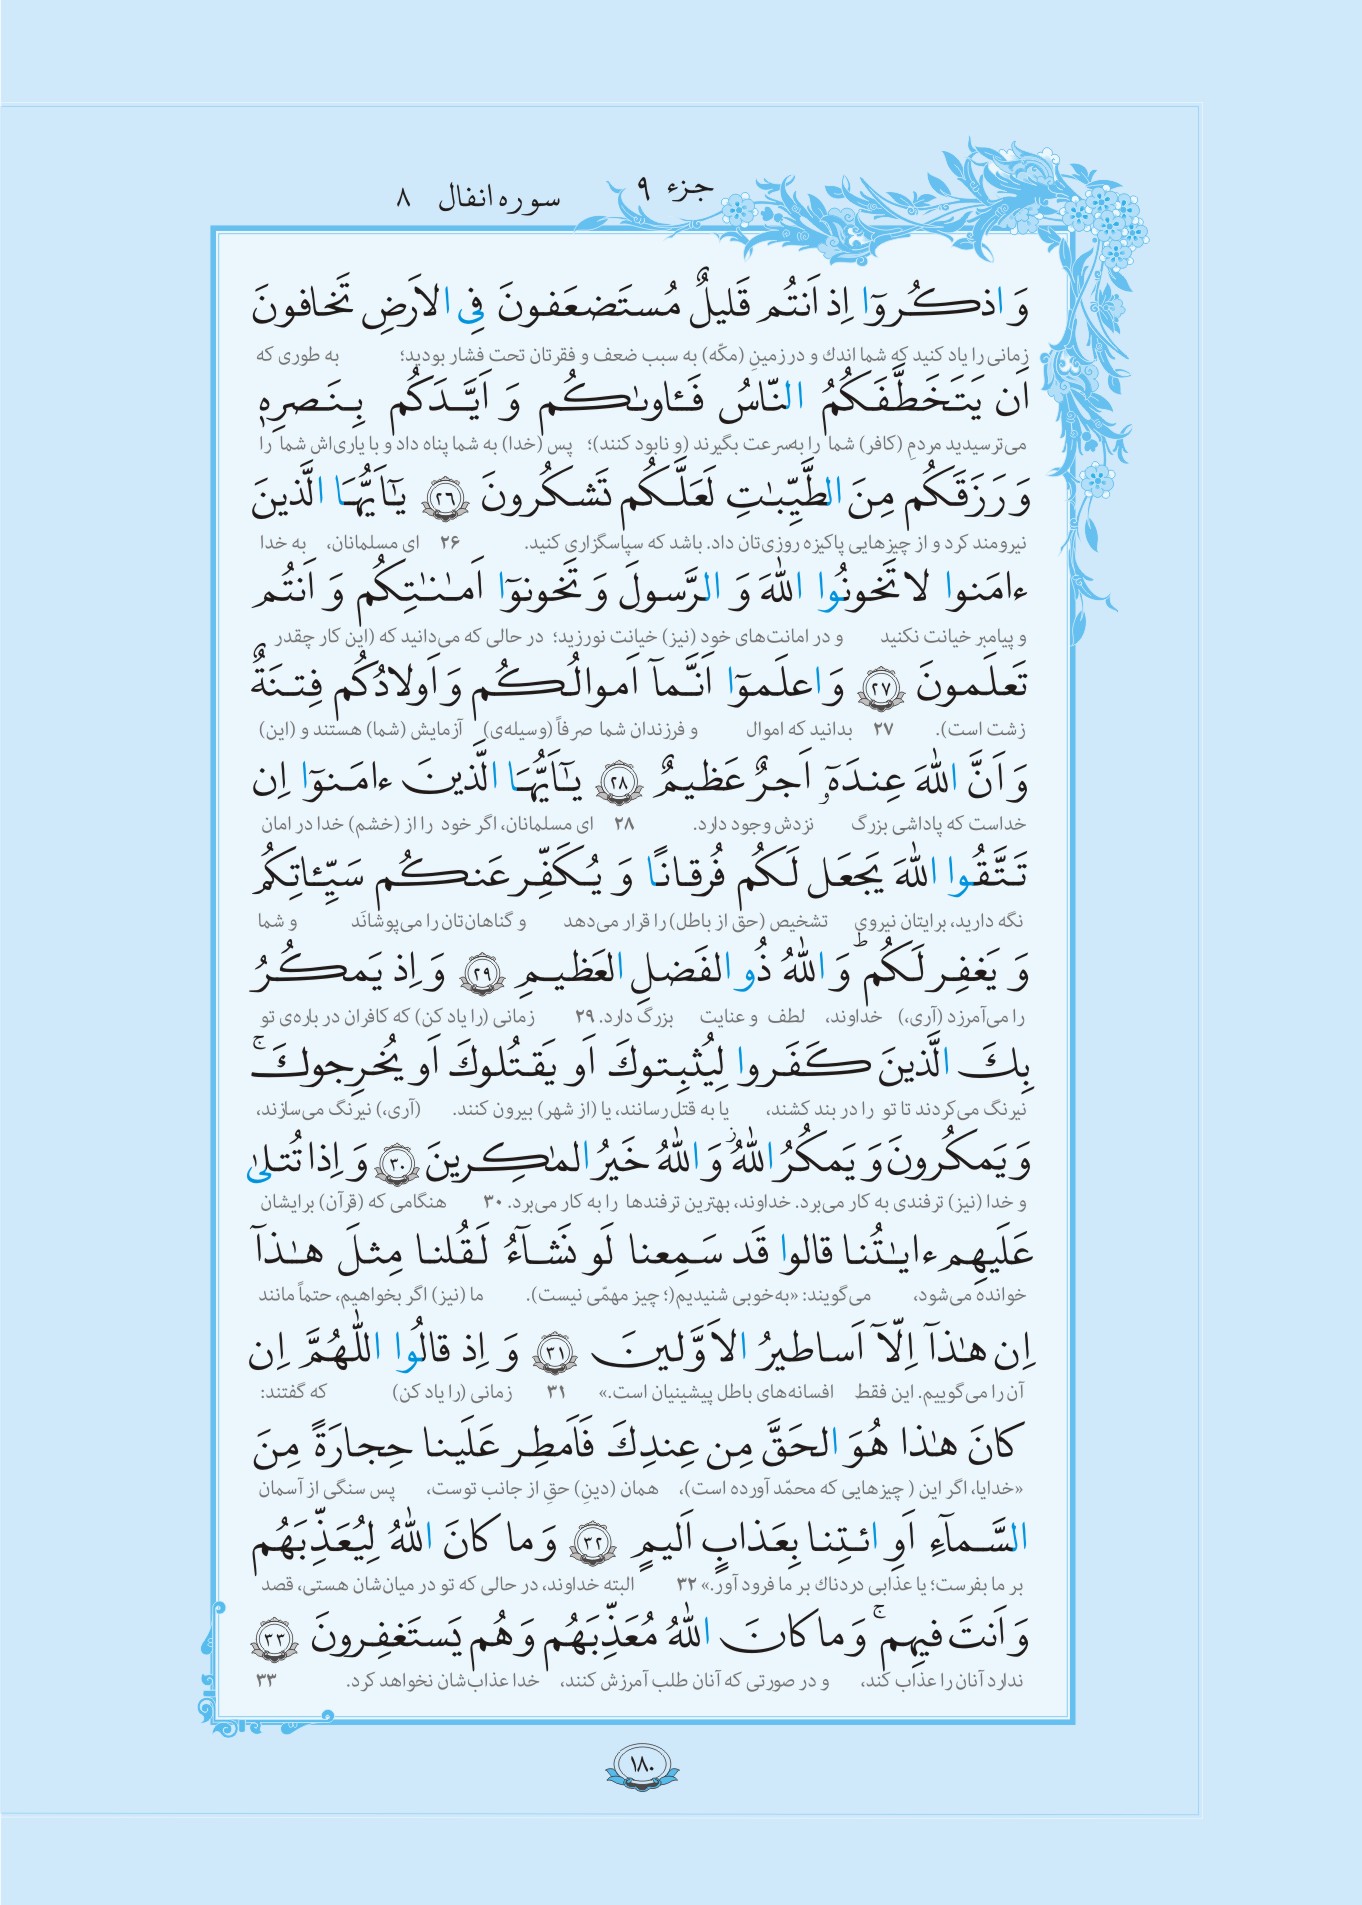 جزء ۹
سوره انفال ۸
وَ اذكُروٓا اِذ اَنتُم قَليلٌ مُستَضعَفونَ فِى الاَرضِ تَخافونَ
زمانی را یاد کنید که شما اندك و در زمینِ (مکّه) به سبب ضعف و فقرتان تحت فشار بودید؛ به طوری که
اَن يَتَخَطَّفَكُمُ النّاسُ فَـٔاوىٰكُم وَ اَيَّدَكُم بِنَصرِهٖ
می‌ترسیدید مردمِ (کافر) شما را به‌سرعت بگیرند (و نابود کنند)؛ پس (خدا) به شما پناه داد و با یاری‌اش شما را
وَ رَزَقَكُم مِنَ الطَّيِّبٰتِ لَعَلَّكُم تَشكُرونَ ﴿۲۶﴾ يـٰٓاَيُّهَا الَّذينَ
نیرومند کرد و از چیزهایی پاکیزه روزی‌تان داد. باشد که سپاسگزاری کنید. ۲۶ ای مسلمانان، به خدا
ءامَنوا لا تَخونُوا اللّٰهَ وَ الرَّسولَ وَ تَخونوٓا اَمـٰنـٰتِكُم وَ اَنتُم
و پیامبر خیانت نکنید و در امانت‌های خود (نیز) خیانت نورزید؛ در حالی که می‌دانید که (این کار چقدر
تَعلَمونَ ﴿۲۷﴾ وَ اعلَموٓا اَنَّمآ اَموالُكُم وَ اَولادُكُم فِتنَةٌ
زشت است). ۲۷ بدانید که اموال و فرزندان شما صرفاً (وسیله‌ی) آزمایش (شما) هستند و (این)
وَ اَنَّ اللّٰهَ عِندَهٗٓ اَجرٌ عَظيمٌ ﴿۲۸﴾ يـٰٓاَيُّهَا الَّذينَ ءامَنوٓا اِن
خداست که پاداشی بزرگ نزدش وجود دارد. ۲۸ ای مسلمانان، اگر خود را از (خشم) خدا در امان
تَتَّقُوا اللّٰهَ يَجعَل لَكُم فُرقانًا وَ يُكَفِّر عَنكُم سَيِّـٔاتِكُم
نگه دارید، برایتان نیروی تشخیص (حق از باطل) را قرار می‌دهد و گناهان‌تان را می‌پوشانَد و شما
وَ يَغفِر لَكُم ؕ وَ اللّٰهُ ذُو الفَضلِ العَظيمِ ﴿۲۹﴾ وَ اِذ يَمكُرُ
را می‌آمرزد (آری،) خداوند، لطف و عنایت بزرگ دارد. ۲۹ زمانی (را یاد کن) که کافران در باره‌ی تو
بِكَ الَّذينَ كَفَروا لِيُثبِتوكَ اَو يَقتُلوكَ اَو يُخرِجوكَ ۚ
نیرنگ می‌کردند تا تو را در بند کشند، یا به قتل رسانند، یا (از شهر) بیرون کنند. (آری،) نیرنگ می‌سازند،
وَ يَمكُرونَ وَ يَمكُرُ اللّٰهُ ز وَ اللّٰهُ خَيرُ المـٰكِرينَ ﴿۳۰﴾ وَ اِذا تُتلىٰ
و خدا (نیز) ترفندی به کار می‌برد. خداوند، بهترین ترفندها را به کار می‌برد. ۳۰ هنگامی که (قرآن) برایشان
عَلَيهِم ءايـٰتُنا قالوا قَد سَمِعنا لَو نَشآءُ لَقُلنا مِثلَ هـٰذآ
خوانده می‌شود، می‌گویند: «به‌خوبی شنیدیم(؛ چیز مهمّی نیست). ما (نیز) اگر بخواهیم، حتماً مانند
اِن هـٰذآ اِلّآ اَساطيرُ الاَوَّلينَ ﴿۳۱﴾ وَ اِذ قالُوا اللّٰهُمَّ اِن
آن را می‌گوییم. این فقط افسانه‌های باطل پیشینیان است.» ۳۱ زمانی (را یاد کن) که گفتند:
كانَ هـٰذا هُوَ الحَقَّ مِن عِندِكَ فَاَمطِر عَلَينا حِجارَةً مِنَ
«خدایا، اگر این ( چیزهایی که محمّد آورده است)، همان (دینِ) حقِ از جانب توست، پس سنگی از آسمان
السَّمآءِ اَوِ ائتِنا بِعَذابٍ اَليمٍ ﴿۳۲﴾ وَ ما كانَ اللّٰهُ لِيُعَذِّبَهُم
بر ما بفرست؛ یا عذابی دردناك بر ما فرود آور.» ۳۲ البته خداوند، در حالی که تو در میان‌شان هستی، قصد
وَ اَنتَ فيهِم ۚ وَ ما كانَ اللّٰهُ مُعَذِّبَهُم وَ هُم يَستَغفِرونَ ﴿۳۳﴾
ندارد آنان را عذاب کند، و در صورتی که آنان طلب آمرزش کنند، خدا عذاب‌شان نخواهد کرد. ۳۳
۱۸۰